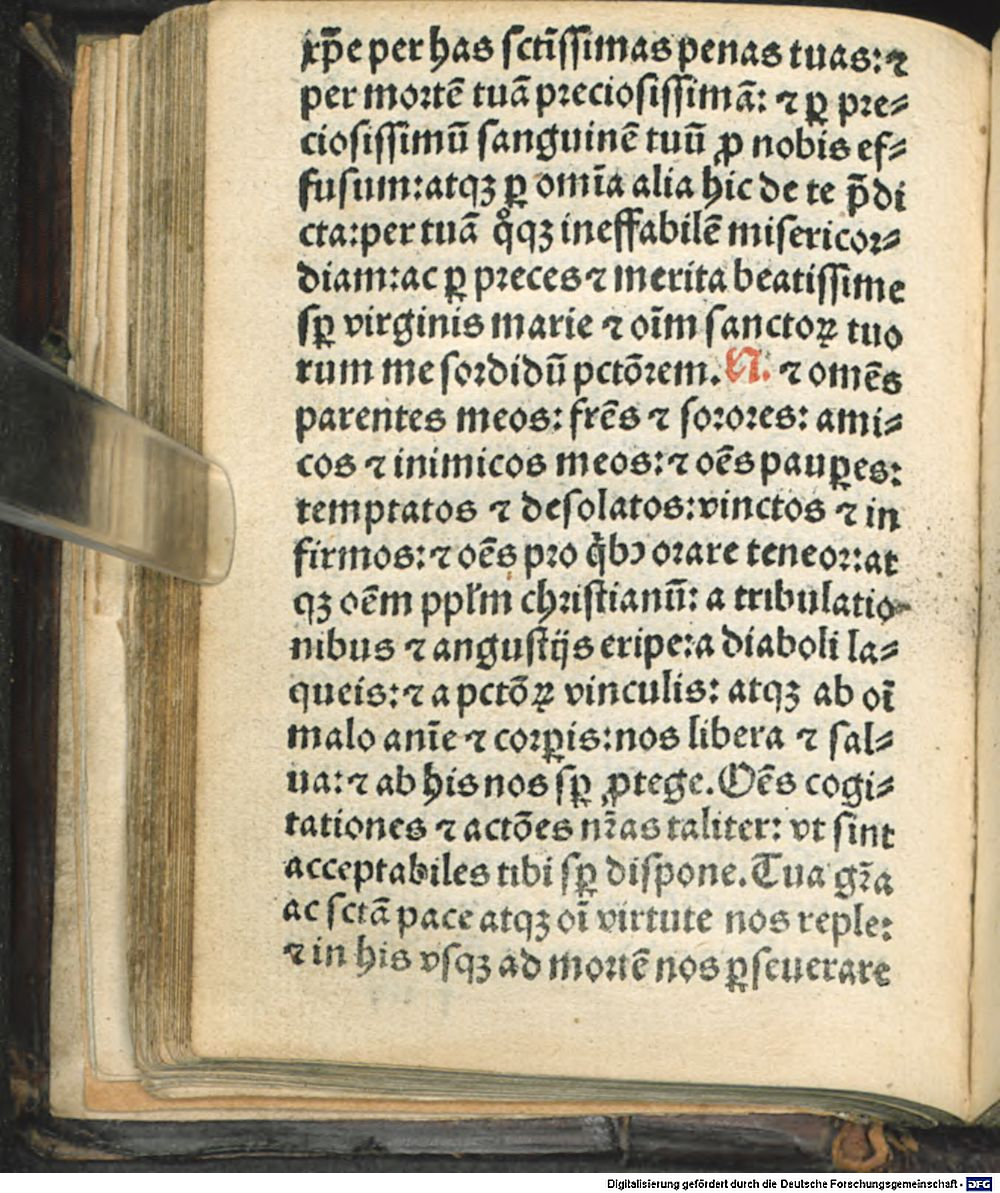 xp̄e per has sctīssimas penas tuas: ⁊
per mortē tuā preciosissimā: ⁊ ꝑ pre⸗
ciosissimū sanguinē tuū ꝓ nobis ef⸗
fusum: atqꝫ ꝑ omīa alia hic de te p̄di
cta: per tuā qͦqꝫ ineffabilē misericor⸗
diam: ac ꝑ preces ⁊ merita beatissime
sꝑ virginis marie ⁊ oīm sanctoꝝ tuo
rum me sordidū pctōrem. N. ⁊ omēs
parentes meos: frēs ⁊ sorores: ami⸗
cos ⁊ inimicos meos: ⁊ oēs pauꝑes:
temptatos ⁊ desolatos: vinctos ⁊ in
firmos: ⁊ oēs pro qͥbꝰ orare teneor: at
qꝫ oēm ppl̄m christianū: a tribulatio
nibus ⁊ angustijs eripe: a diaboli la⸗
queis: ⁊ a pctōꝝ vinculis: atqꝫ ab oī
malo anīe ⁊ corꝑis: nos libera ⁊ sal⸗
ua: ⁊ ab his nos sꝑ ꝓtege. Oēs cogi⸗
tationes ⁊ actōes nr̄as taliter: vt sint
acceptabiles tibi sꝑ dispone. Tua gr̄a
ac sctā pace atqꝫ oī virtute nos reple:
⁊ in his vsqꝫ ad mortē nos ꝑseuerare
Digitalisierung gefördert durch die Deutsche Forschungsgemeinschaft - DFG